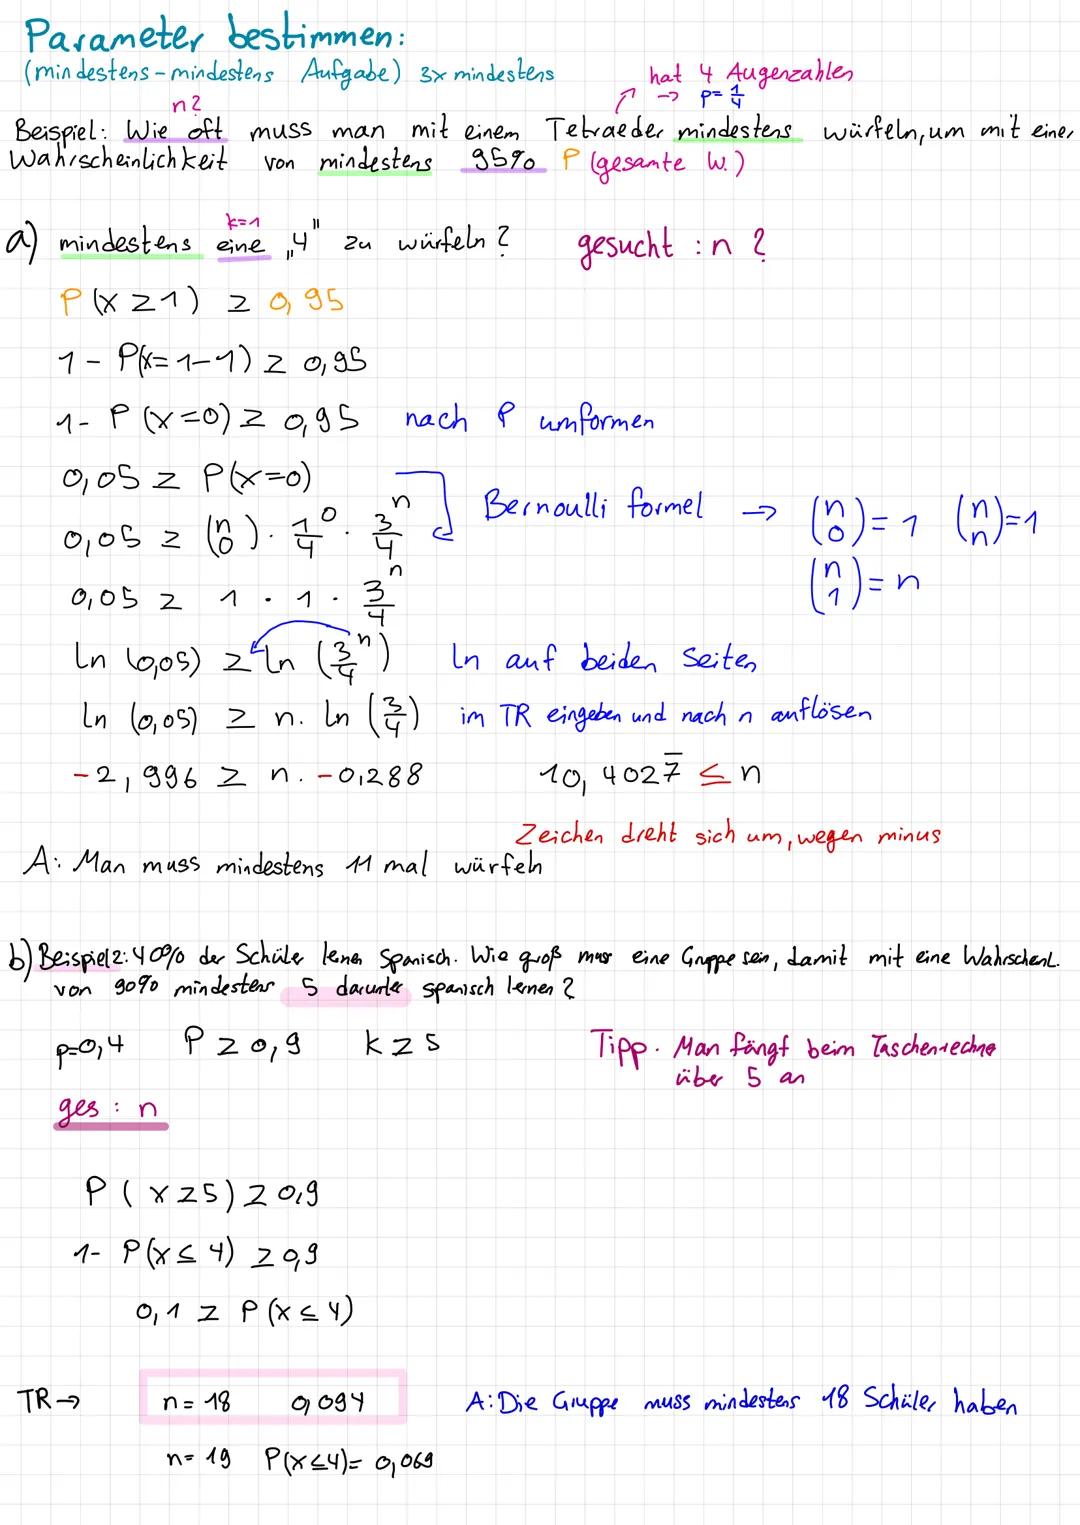 Parameter bestimmen:
(mindestens-mindestens Aufgabe) 3x mindestens
hat 4 Augenzahlen
→ p= 1/4
n?
Beispiel: Wie oft muss man mit einem Tetraeder mindestens würfeln, um mit einer
Wahrscheinlichkeit von mindestens 95% P (gesamte W.)
k=1
a) mindestens eine „4" zu würfeln? gesucht: n?
P(X≥1) ≥ 0,95
1 - P(x=1-1) ≥ 0,95
1- P(x=0) ≥ 0,95 nach P umformen
0,05 ≥ P(x=0)
0,05 ≥ (n 0) · 1/4^0 · 3/4^n Bernoulli formel → (n 0) = 1 (n n) = 1
(n 1) = n
0,05 ≥ 1 · 1 · 3/4^n
ln (0,05) ≥ ln (3/4^n) ln auf beiden Seiten
ln (0,05) ≥ n. ln (3/4) im TR eingeben und nach n auflösen
-2,996 ≥ n. -0,288 10,4027̅ ≤ n
Zeichen dreht sich um, wegen minus
A: Man muss mindestens 11 mal würfeln
b) Beispiel 2: 40% der Schüler lernen Spanisch. Wie groß mus eine Gruppe sein, damit mit eine Wahrscheinl.
von 90% mindestens 5 darunter spanisch lernen?
p=0,4 P ≥ 0,9 k ≥ 5 Tipp. Man fängt beim Taschenrechner
über 5 an
ges: n
P(x≥5) ≥ 0,9
1- P(x≤4) ≥ 0,9
0,1 ≥ P(x≤4)
TR→ n= 18 0,094 A: Die Gruppe muss mindestens 18 Schüler haben
n= 19 P(X≤4)= 0,069